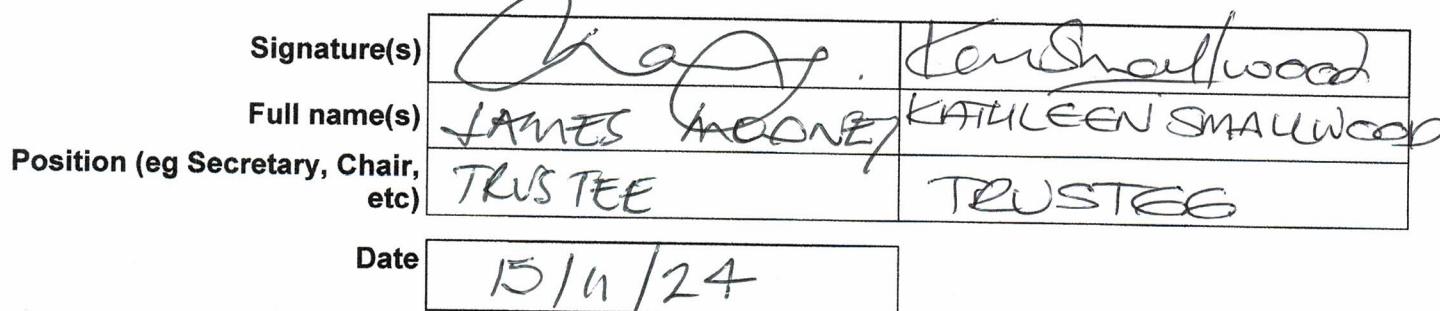 Signature(s) Ken Smallwood
Full name(s) JAMES MOONEY KATHLEEN SMALLWOOD
Position (eg Secretary, Chair,
etc) TRUSTEE TRUSTEE
Date 15/11/24